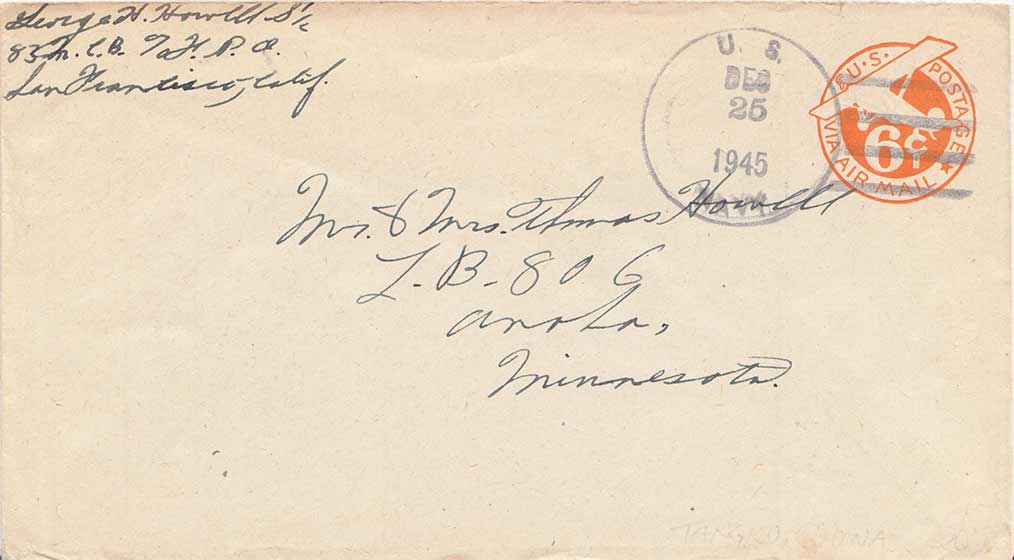 George H. Howell S 1/c
83rd. C.B. c/o F. P. O.
San Francisco, Calif.
U. S.
DEC
25
1945
NAVY
U.S. POSTAGE
6¢
VIA AIR MAIL
Mr. & Mrs. Thomas Howell
L. B. 806
Anoka,
Minnesota.